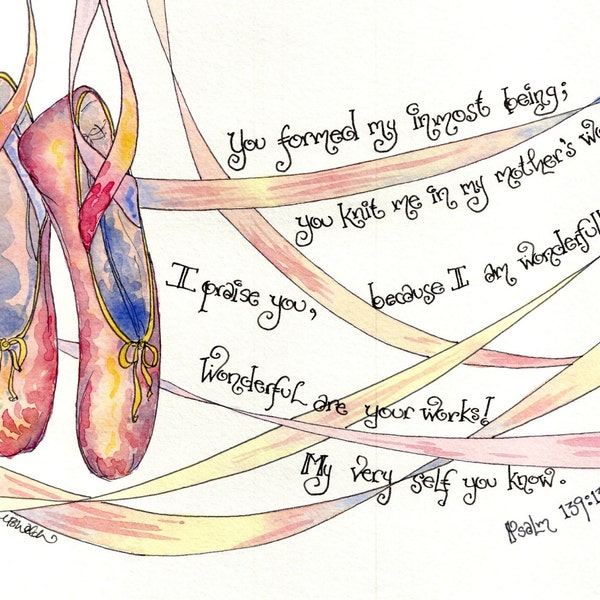 You formed my inmost being;
you knit me in my mother's
I praise you, because I am
Wonderful are your works!
My very self you know.
Psalm